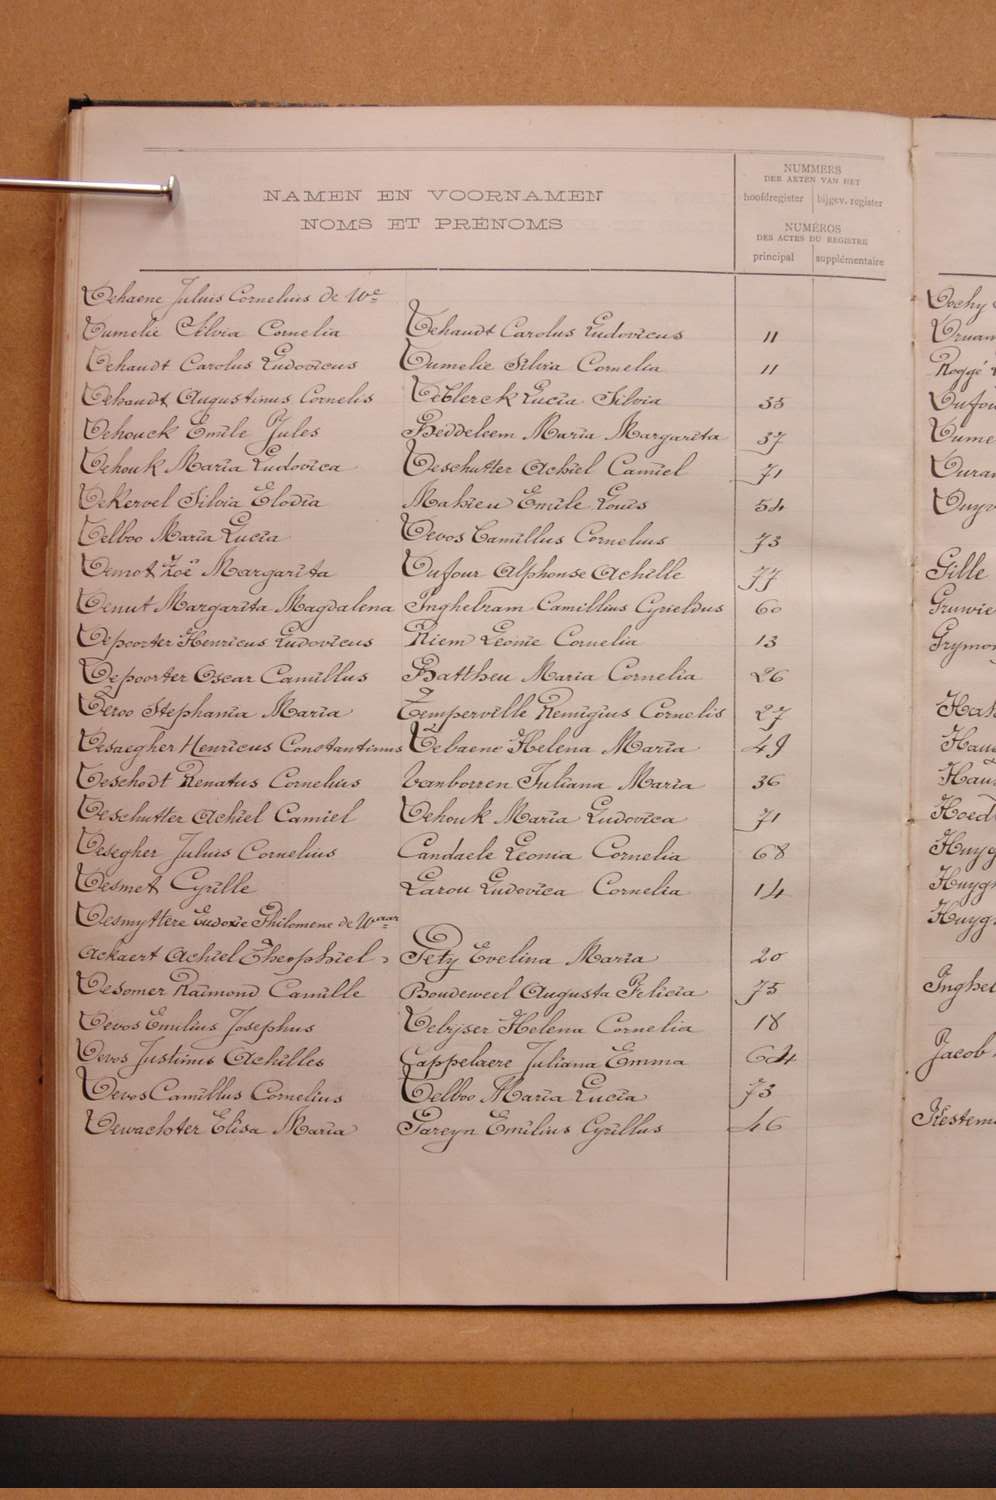 NAMEN EN VOORNAMEN
NOMS ET PRÉNOMS
NUMMERS
DER AKTEN VAN HET
hoofdregister bijgev. register
NUMÉROS
DES ACTES DU REGISTRE
principal supplémentaire
Dehaene Juluis Cornelius de We
Dumelie Silvia Cornelia Dehaudt Carolus Ludovicus 11
Dehaudt Carolus Ludovicus Dumelie Silvia Cornelia 11
Dehaudt Augustinus Cornelis DeClerck Lucia Silvia 35
Dehouck Emile Jules Beddeleem Maria Margarita 37
Dehouk Maria Ludovica Deschutter Achiel Camiel 71
DeKervel Silvia Elodia Mahieu Emile Louis 54
Delboo Maria Lucia Devos Camillus Cornelius 73
Demot Zoë Margarita Dufour Alphonse Achille 77
Denut Margarita Magdalena Inghelram Camillius Cyrieldus 60
Depoorter Henricus Ludovicus Riem Leonie Cornelia 13
Depoorter Oscar Camillus Battheu Maria Cornelia 26
Deroo Stephania Maria Temperville Remigius Cornelis 27
Desaegher Henricus Constantinus Debaene Helena Maria 49
Deschodt Renatus Cornelius Vanborren Juliana Maria 36
Deschutter Achiel Camiel Dehouk Maria Ludovica 71
Desegher Juluis Cornelius Candaele Leonia Cornelia 68
Desmet Cyrille Larou Ludovica Cornelia 14
Desmyttere Eudoxie Philomene de Waar
Ackaert Achiel Theophiel Pety Evelina Maria 20
Desomer Raimond Camille Boudeweel Augusta Felicia 75
Devos Emilius Josephus Debyser Helena Cornelia 18
Devos Justinus Achilles Cappelaere Juliana Emma 64
Devos Camillus Cornelius Delboo Maria Lucia 73
Dewachter Elisa Maria Pareyn Emilius Cyrillus 46
Dochy
Roggé
Gille